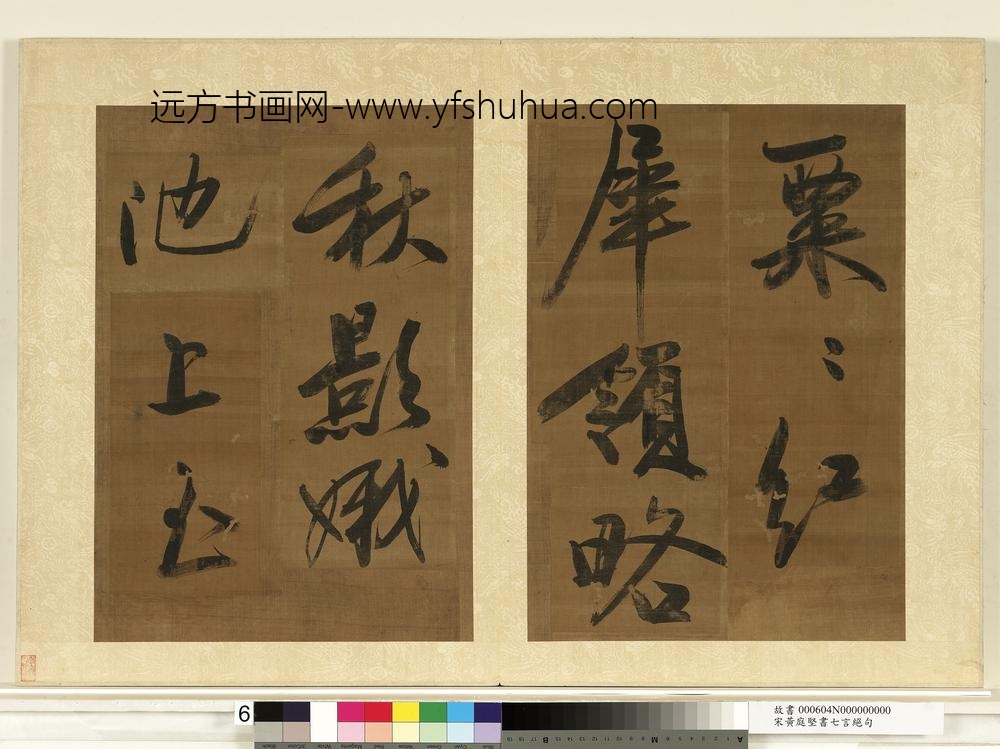 远方书画网-www.yfshuhua.com
粟〻紅
犀領略
秋影娥
池上玉
6
故書 000604N000000000
宋黃庭堅書七言絕句